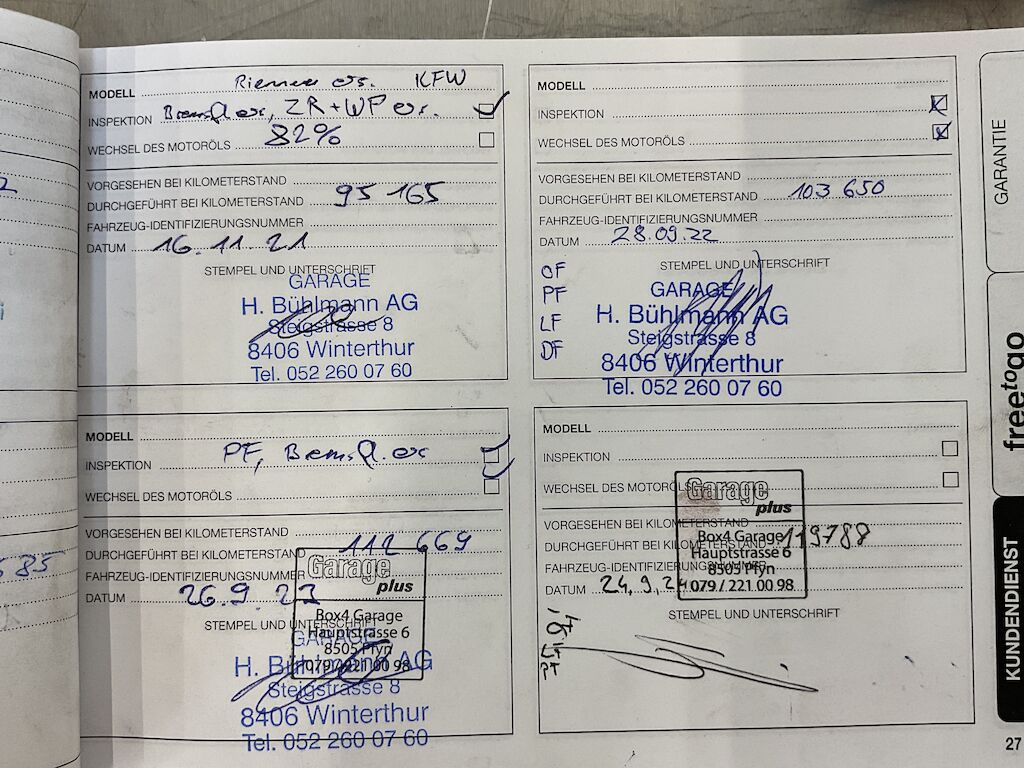 MODELL Riemen ers. KFW
INSPEKTION Bremsfl. ers, ZR+WP ers.
WECHSEL DES MOTORÖLS 82%
VORGESEHEN BEI KILOMETERSTAND
DURCHGEFÜHRT BEI KILOMETERSTAND 95 165
FAHRZEUG-IDENTIFIZIERUNGSNUMMER
DATUM 16.11.21
STEMPEL UND UNTERSCHRIFT
GARAGE
H. Bühlmann AG
Steigstrasse 8
8406 Winterthur
Tel. 052 260 07 60
MODELL
INSPEKTION
WECHSEL DES MOTORÖLS
VORGESEHEN BEI KILOMETERSTAND
DURCHGEFÜHRT BEI KILOMETERSTAND 103 650
FAHRZEUG-IDENTIFIZIERUNGSNUMMER
DATUM 28.09.22
STEMPEL UND UNTERSCHRIFT
OF
PF
LF
DF
GARAGE
H. Bühlmann AG
Steigstrasse 8
8406 Winterthur
Tel. 052 260 07 60
MODELL
INSPEKTION PF, Bremsfl. ers
WECHSEL DES MOTORÖLS
VORGESEHEN BEI KILOMETERSTAND
DURCHGEFÜHRT BEI KILOMETERSTAND 112 669
FAHRZEUG-IDENTIFIZIERUNGSNUMMER
DATUM 26.9.23
STEMPEL UND UNTERSCHRIFT
Garage
plus
Box4 Garage
Hauptstrasse 6
8505 Pfyn
079 / 221 00 98
GARAGE
H. Bühlmann AG
Steigstrasse 8
8406 Winterthur
Tel. 052 260 07 60
MODELL
INSPEKTION
WECHSEL DES MOTORÖLS
VORGESEHEN BEI KILOMETERSTAND
DURCHGEFÜHRT BEI KILOMETERSTAND 119788
FAHRZEUG-IDENTIFIZIERUNGSNUMMER
DATUM 24.9.24
Garage
plus
Box4 Garage
Hauptstrasse 6
8505 Pfyn
079 / 221 00 98
STEMPEL UND UNTERSCHRIFT
GARANTIE
freetogo
KUNDENDIENST
27